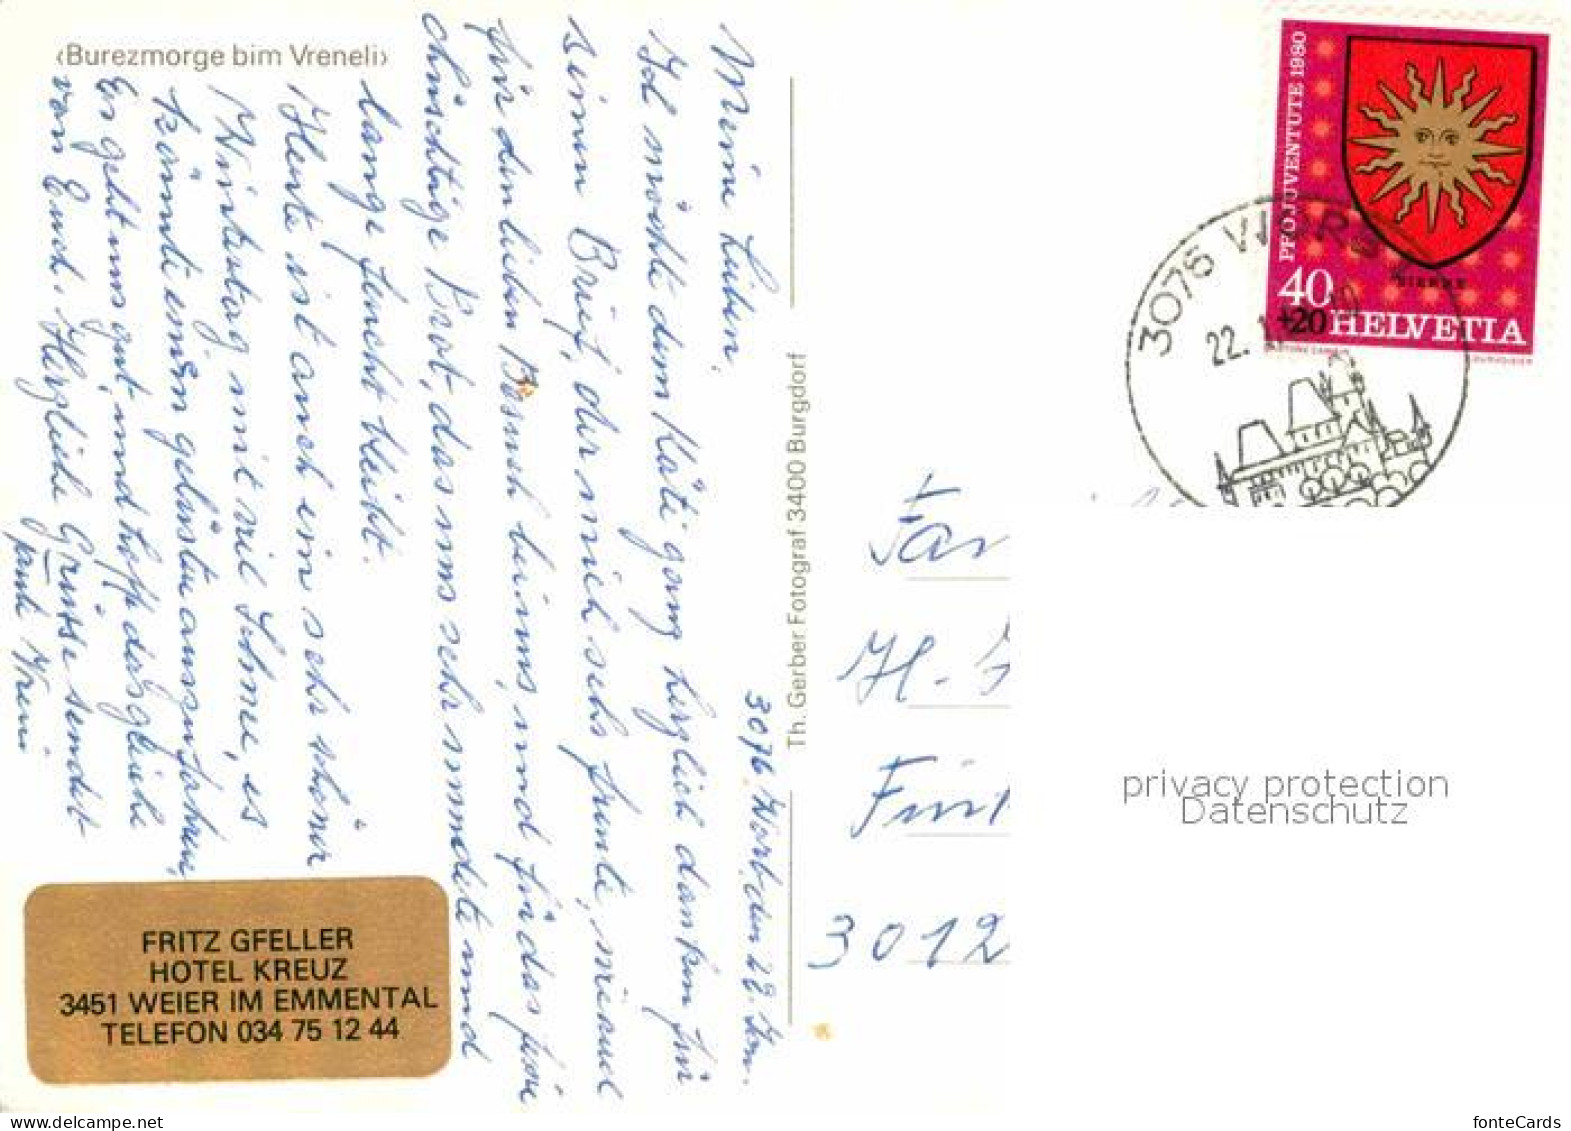 ‹Burezmorge bim Vreneli›
3076. Worb, den 22. Jan.
Meine Lieben.
Ich möchte dem Käti ganz herzlich danken für
seinen Brief, der mich sehr freute, nieml
für den lieben Besuch beim und für das feine
chüschtige Brot, das uns sehr mundete und
lange feucht bleibt.
Heute ist auch ein sehr schöner
Wintertag mit viel Schnee, es
könnte einen gelüsten auszufahren,
Es geht uns gut, und hoffe das gleiche
von Euch. Herzliche Grüsse sendet
Vreni
Th. Gerber Fotograf 3400 Burgdorf
FRITZ GFELLER
HOTEL KREUZ
3451 WEIER IM EMMENTAL
TELEFON 034 75 12 44
PRO JUVENTUTE 1980
SIERRE
40
+20 HELVETIA
3076 WORB
22. 1.
Fam
H.
3012
privacy protection
Datenschutz
fonteCards